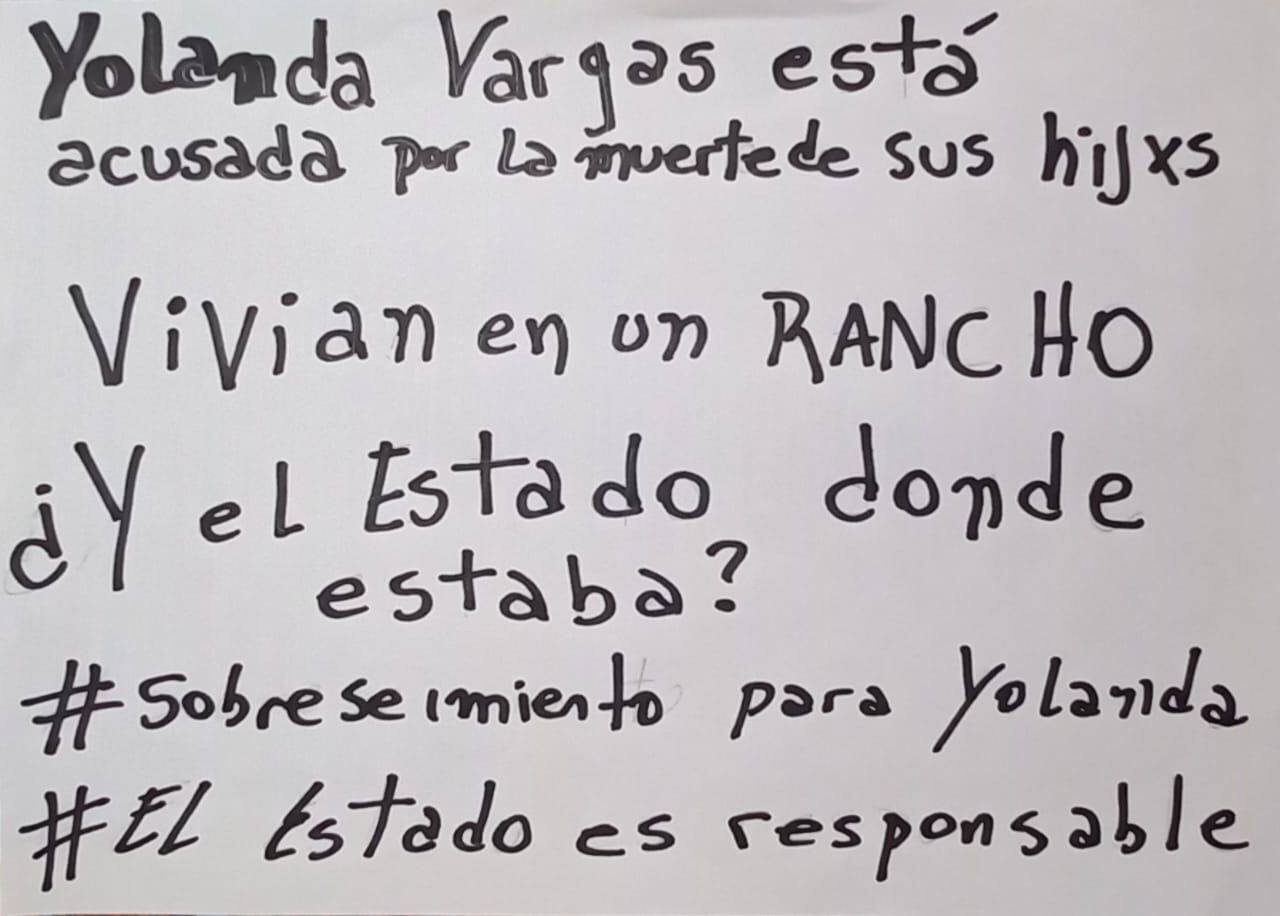 Yolanda Vargas está
acusada por la muerte de sus hijxs
Vivian en un RANCHO
¿Y el Estado donde
estaba?
#Sobreseimiento para Yolanda
#El Estado es responsable